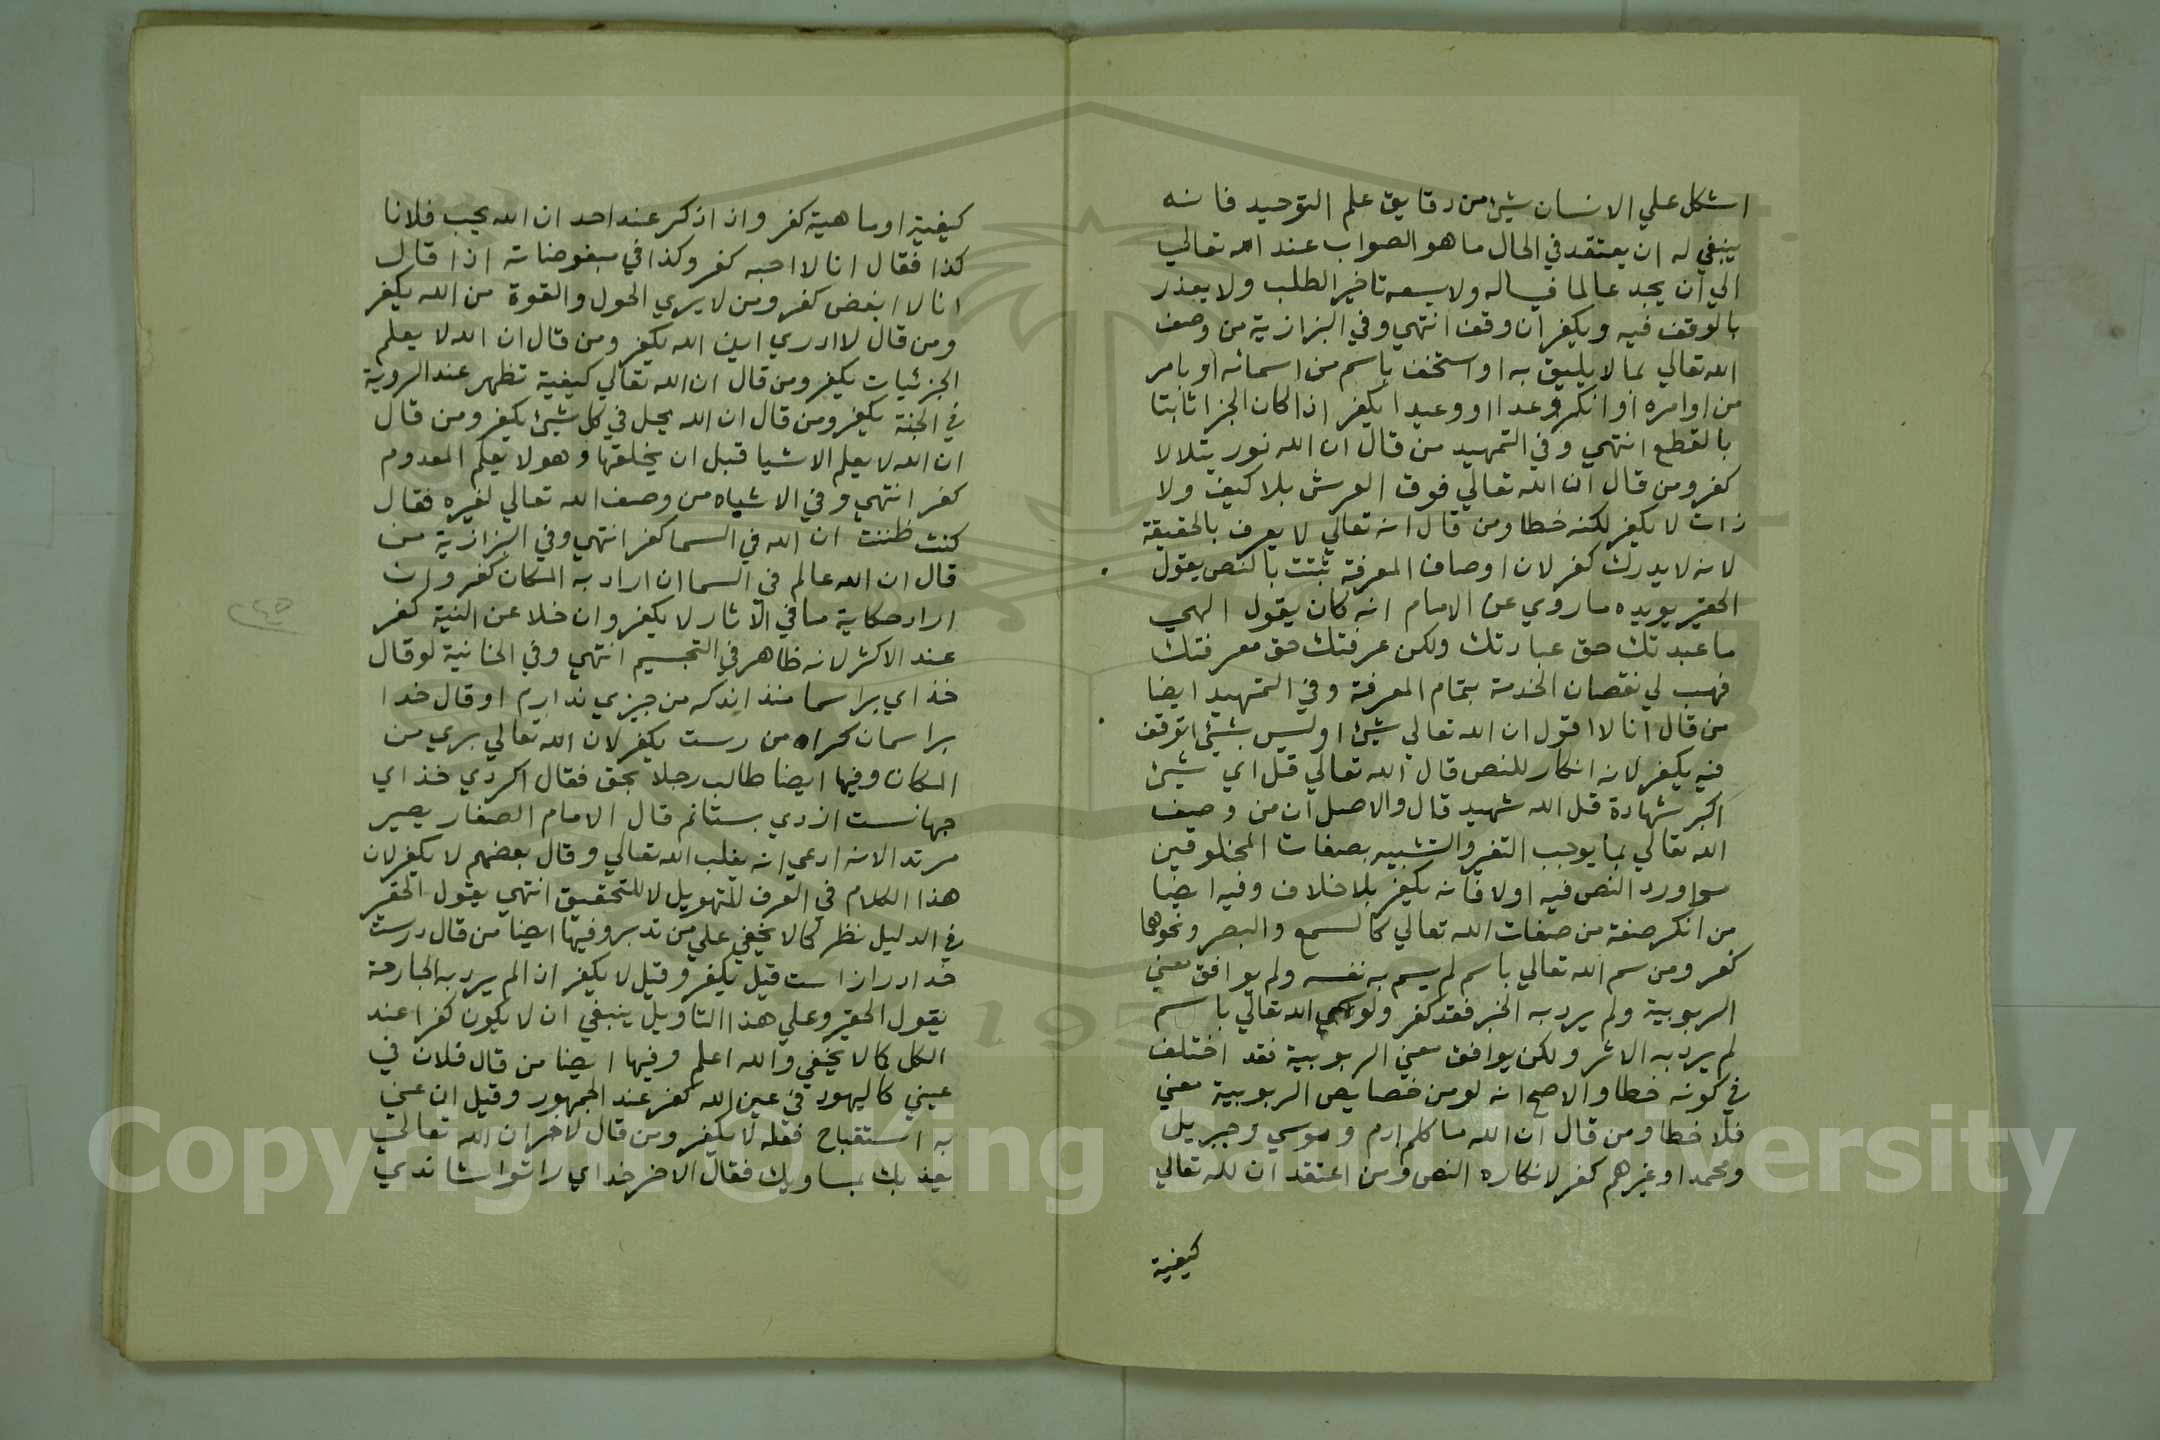 اشكل علي الانسان شيئ من دقايق علم التوحيد فانه
ينبغي له ان يعتقد في الحال ما هو الصواب عند الله تعالي
الي ان يجد عالما فيساله ولا يسعه تاخير الطلب ولا يعذر
بالوقف فيه ويكفر ان وقف انتهي وفي البزازية من وصف
الله تعالي بما لا يليق به او استخف باسم من اسمائه او بامر
من اوامره او انكر وعدا او وعيدا يكفر اذا كان الجزا ثابتا
بالقطع انتهي وفي التمهيد من قال ان الله نور يتلالا
كفر ومن قال ان الله تعالي فوق العرش بلا كيف ولا
ذات لا يكفر لكنه خطا ومن قال انه تعالي لا يعرف بالحقيقة
لانه لا يدرك كفر لان اوصاف المعرفة ثبتت بالنص يقول
الحقير يويده ما روي عن الامام انه كان يقول الهي
ما عبدتك حق عبادتك ولكن عرفتك حق معرفتك
فهب لي نقصان الخدمة بتمام المعرفة وفي التمهيد ايضا
من قال انا لا اقول ان الله تعالي شيئ او ليس بشيئ اتوقف
فيه يكفر لانه انكار للنص قال الله تعالي قل اي شيئ
اكبر شهادة قل الله شهيد قال والاصل ان من وصف
الله تعالي بما يوجب التغير والتشبيه بصفات المخلوقين
سوا ورد النص فيه او لا فانه يكفر بلا خلاف وفيه ايضا
من انكر صفة من صفات الله تعالي كالسمع والبصر ونحوهما
كفر ومن سم الله تعالي باسم لم يسم به نفسه ولم يوافق معني
الربوبية ولم يرد به الخبر فقد كفر ولو سمي الله تعالي باسم
لم يرد به الاثر ولكن يوافق معني الربوبية فقد اختلف
في كونه خطا والاصح انه لو من خصايص الربوبية معني
فلا خطا ومن قال ان الله ما كلم ادم وموسي وجبريل
ومحمدا وغيرهم كفر لانكاره النص ومن اعتقد ان لله تعالي
كيفية
كيفية او ماهية كفر واذا ذكر عند احد ان الله يحب فلانا
كذا فقال انا لا احبه كفر وكذا في مبغوضاته اذا قال
انا لا ابغض كفر ومن لا يري الحول والقوة من الله يكفر
ومن قال لا ادري اين الله يكفر ومن قال ان الله لا يعلم
الجزئيات يكفر ومن قال ان الله تعالي كيفية تظهر عند الروية
في الجنة يكفر ومن قال ان الله يحل في كل شيئ يكفر ومن قال
ان الله لا يعلم الاشيا قبل ان يخلقها وهو لا يعلم المعدوم
كفر انتهي وفي الاشباه من وصف الله تعالي لغيره فقال
كنت ظننت ان الله في السما كفر انتهي وفي البزازية من
قال ان الله عالم في السما ان اراد به المكان كفر وان
اراد حكاية ما في الآثار لا يكفر وان خلا عن النية كفر
عند الاكثر لانه ظاهر في التجسيم انتهي وفي الخانية لو قال
خذاي براسما منذ اندكه من جيزي ندارم او قال خدا
براسمان كراه من رست يكفر لان الله تعالي بري من
المكان وفيها ايضا طالب رجلا بحق فقال اكردي خذاي
جهانست ازدي بستانم قال الامام الصفار يصير
مرتدا لانه ادعي انه يغلب الله تعالي وقال بعضهم لا يكفر لان
هذا الكلام في العرف للتهويل لا للتحقيق انتهي يقول الحقير
في الدليل نظر كما لا يخفي علي من تدبر وفيها ايضا من قال درست
خدا دراز است قيل يكفر وقيل لا يكفر ان لم يرد به الجارحة
يقول الحقير وعلي هذا التاويل ينبغي ان لا يكون كفرا عند
الكل كما لا يخفي والله اعلم وفيها ايضا من قال فلان في
عيني كاليهود في عين الله كفر عند الجمهور وقيل ان عني
به استقباح فعله لا يكفر ومن قال لآخر ان الله تعالي
يعذبك بمساويك فقال الاخر خداي را تو انشاندي
Copyright © King Saud University